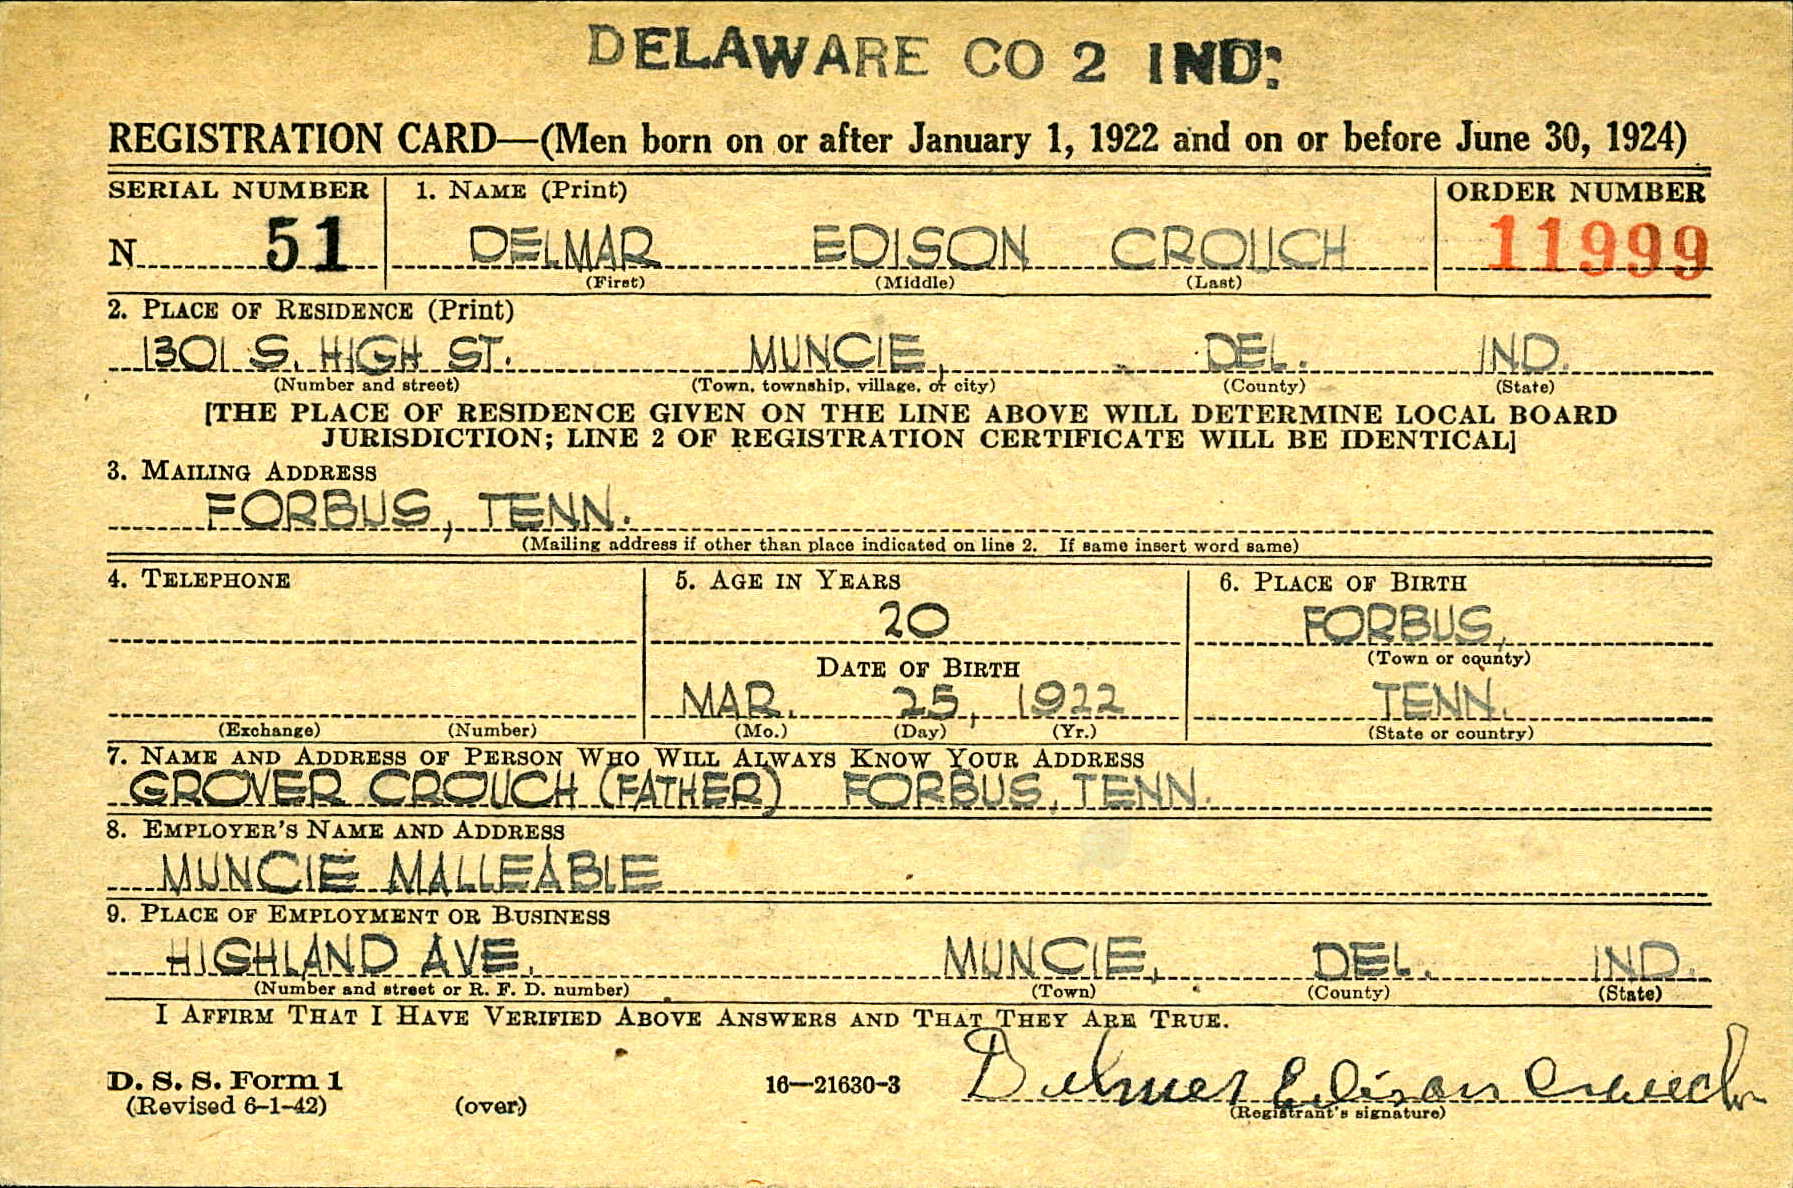 DELAWARE CO 2 IND:
REGISTRATION CARD—(Men born on or after January 1, 1922 and on or before June 30, 1924)
SERIAL NUMBER 1. NAME (Print) ORDER NUMBER
N 51 DELMAR EDISON CROUCH 11999
(First) (Middle) (Last)
2. PLACE OF RESIDENCE (Print)
1301 S. HIGH ST. MUNCIE, DEL. IND.
(Number and street) (Town, township, village, or city) (County) (State)
[THE PLACE OF RESIDENCE GIVEN ON THE LINE ABOVE WILL DETERMINE LOCAL BOARD
JURISDICTION; LINE 2 OF REGISTRATION CERTIFICATE WILL BE IDENTICAL]
3. MAILING ADDRESS
FORBUS, TENN.
(Mailing address if other than place indicated on line 2. If same insert word same)
4. TELEPHONE 5. AGE IN YEARS 6. PLACE OF BIRTH
20 FORBUS,
(Town or county)
DATE OF BIRTH
MAR. 25, 1922 TENN.
(Exchange) (Number) (Mo.) (Day) (Yr.) (State or country)
7. NAME AND ADDRESS OF PERSON WHO WILL ALWAYS KNOW YOUR ADDRESS
GROVER CROUCH (FATHER) FORBUS, TENN.
8. EMPLOYER'S NAME AND ADDRESS
MUNCIE MALLEABLE
9. PLACE OF EMPLOYMENT OR BUSINESS
HIGHLAND AVE. MUNCIE, DEL. IND.
(Number and street or R. F. D. number) (Town) (County) (State)
I AFFIRM THAT I HAVE VERIFIED ABOVE ANSWERS AND THAT THEY ARE TRUE.
D. S. S. Form 1 16—21630-3 Delmer Edison Crouch
(Revised 6-1-42) (over) (Registrant's signature)